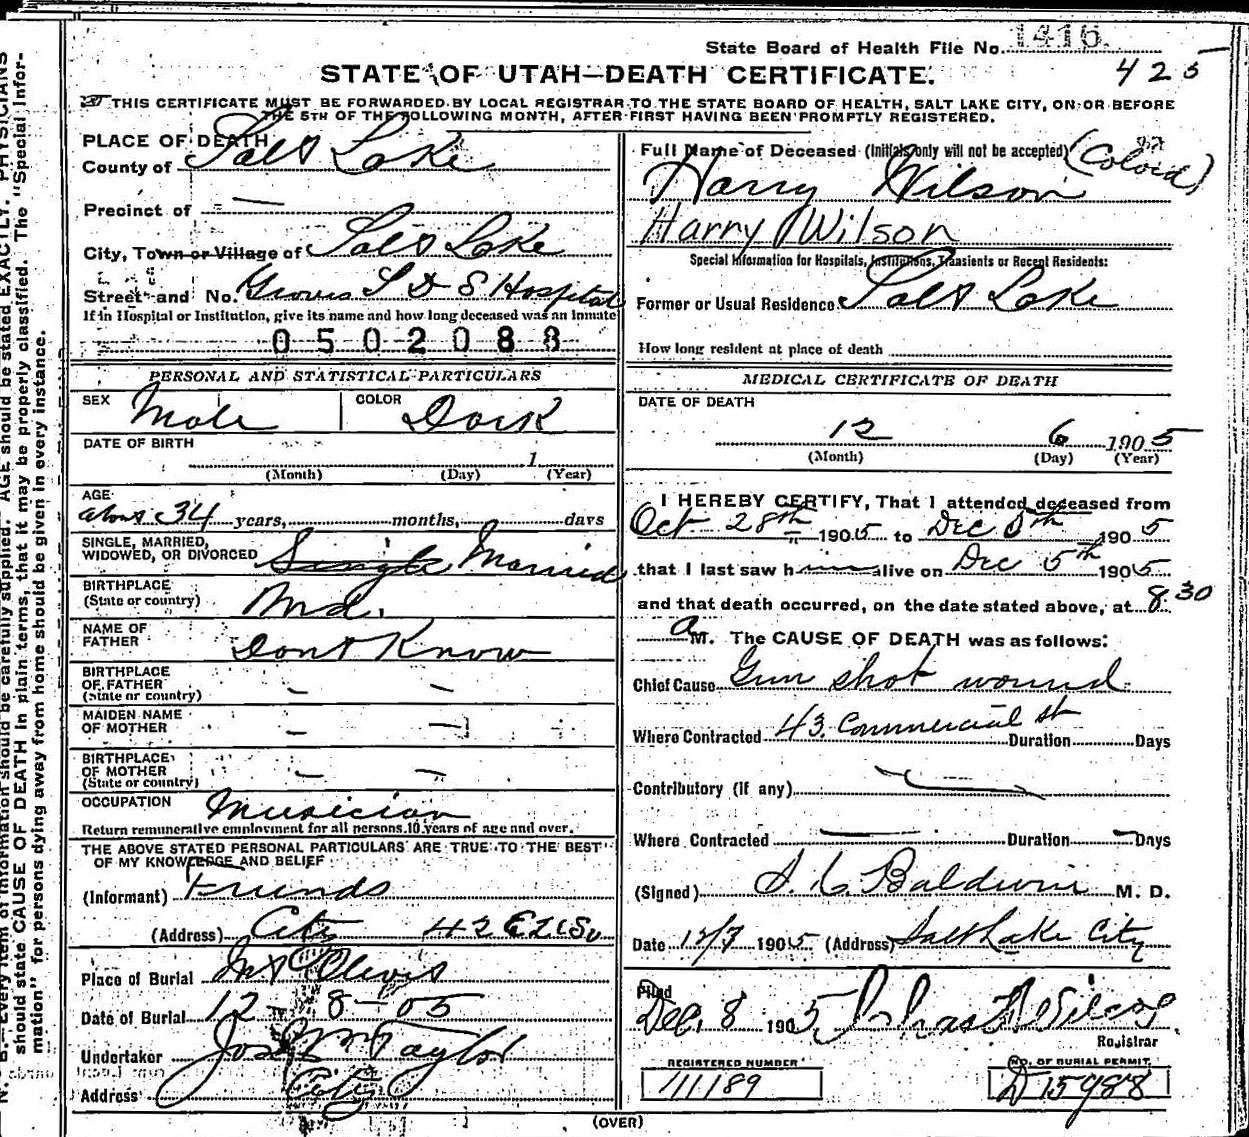 State Board of Health File No. 1416
425
STATE OF UTAH—DEATH CERTIFICATE.
THIS CERTIFICATE MUST BE FORWARDED BY LOCAL REGISTRAR TO THE STATE BOARD OF HEALTH, SALT LAKE CITY, ON OR BEFORE
THE 5TH OF THE FOLLOWING MONTH, AFTER FIRST HAVING BEEN PROMPTLY REGISTERED.
PLACE OF DEATH
County of Salt Lake
Precinct of —
City, Town or Village of Salt Lake
Street and No. Groves L D S Hospital
If in Hospital or Institution, give its name and how long deceased was an inmate
0502088
PERSONAL AND STATISTICAL PARTICULARS
SEX Male COLOR Dark
DATE OF BIRTH
1
(Month) (Day) (Year)
AGE
about 34 years, months, days
SINGLE, MARRIED,
WIDOWED, OR DIVORCED Single Married
BIRTHPLACE
(State or country) Md.
NAME OF
FATHER Dont Know
BIRTHPLACE
OF FATHER
(State or country) — —
MAIDEN NAME
OF MOTHER — —
BIRTHPLACE
OF MOTHER
(State or country) — —
OCCUPATION Musician
Return remunerative employment for all persons 10 years of age and over.
THE ABOVE STATED PERSONAL PARTICULARS ARE TRUE TO THE BEST
OF MY KNOWLEDGE AND BELIEF
(Informant) Friends
(Address) City
Place of Burial Mt Olivet
Date of Burial 12 - 8 - 05
Undertaker Jos Wm Taylor
Address City
Full Name of Deceased (Initials only will not be accepted) (Colord)
Harry Wilson
Harry Wilson
Special Information for Hospitals, Institutions, Transients or Recent Residents:
Former or Usual Residence Salt Lake
How long resident at place of death
MEDICAL CERTIFICATE OF DEATH
DATE OF DEATH
12 6 1905
(Month) (Day) (Year)
I HEREBY CERTIFY, That I attended deceased from
Oct 28th 1905 to Dec 5th 1905
that I last saw h alive on Dec 5th 1905
and that death occurred, on the date stated above, at 8 30
a M. The CAUSE OF DEATH was as follows:
Chief Cause Gun shot wound
Where Contracted 43 Commercial st Duration Days
Contributory (if any) —
Where Contracted — Duration — Days
(Signed) S. C Baldwin M. D.
Date 12/7 1905 (Address) Salt Lake City
Filed
Dec. 8 1905
Registrar
REGISTERED NUMBER
111189
NO. OF BURIAL PERMIT
D 15988
(OVER)
should state CAUSE OF DEATH in plain terms, that it may be properly classified. The "Special Infor-
mation" for persons dying away from home should be given in every instance.